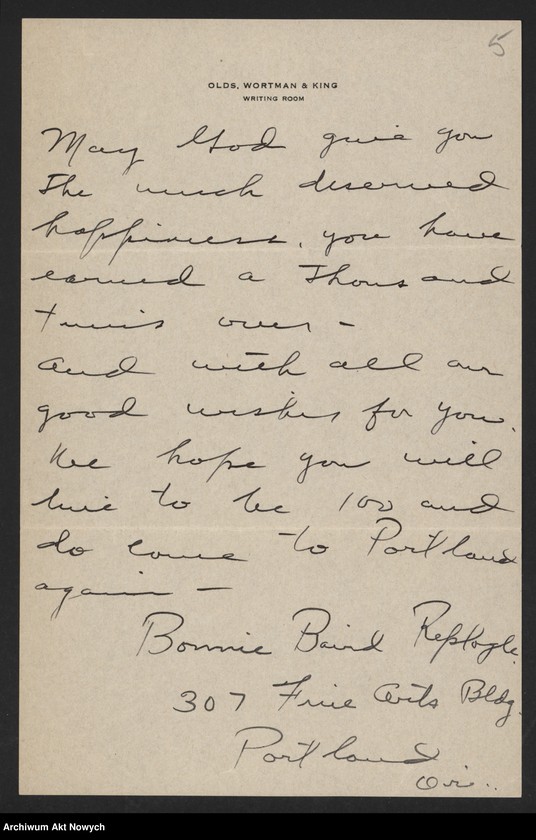 5
OLDS, WORTMAN & KING
WRITING ROOM
May God give you
the much deserved
happiness, you have
earned a thousand
times over -
and with all our
good wishes for you.
We hope you will
live to be 100 and
do come to Portland
again -
Bonnie Baird Replogle.
307 Fine Arts Bldg.
Portland
Ore..
Archiwum Akt Nowych